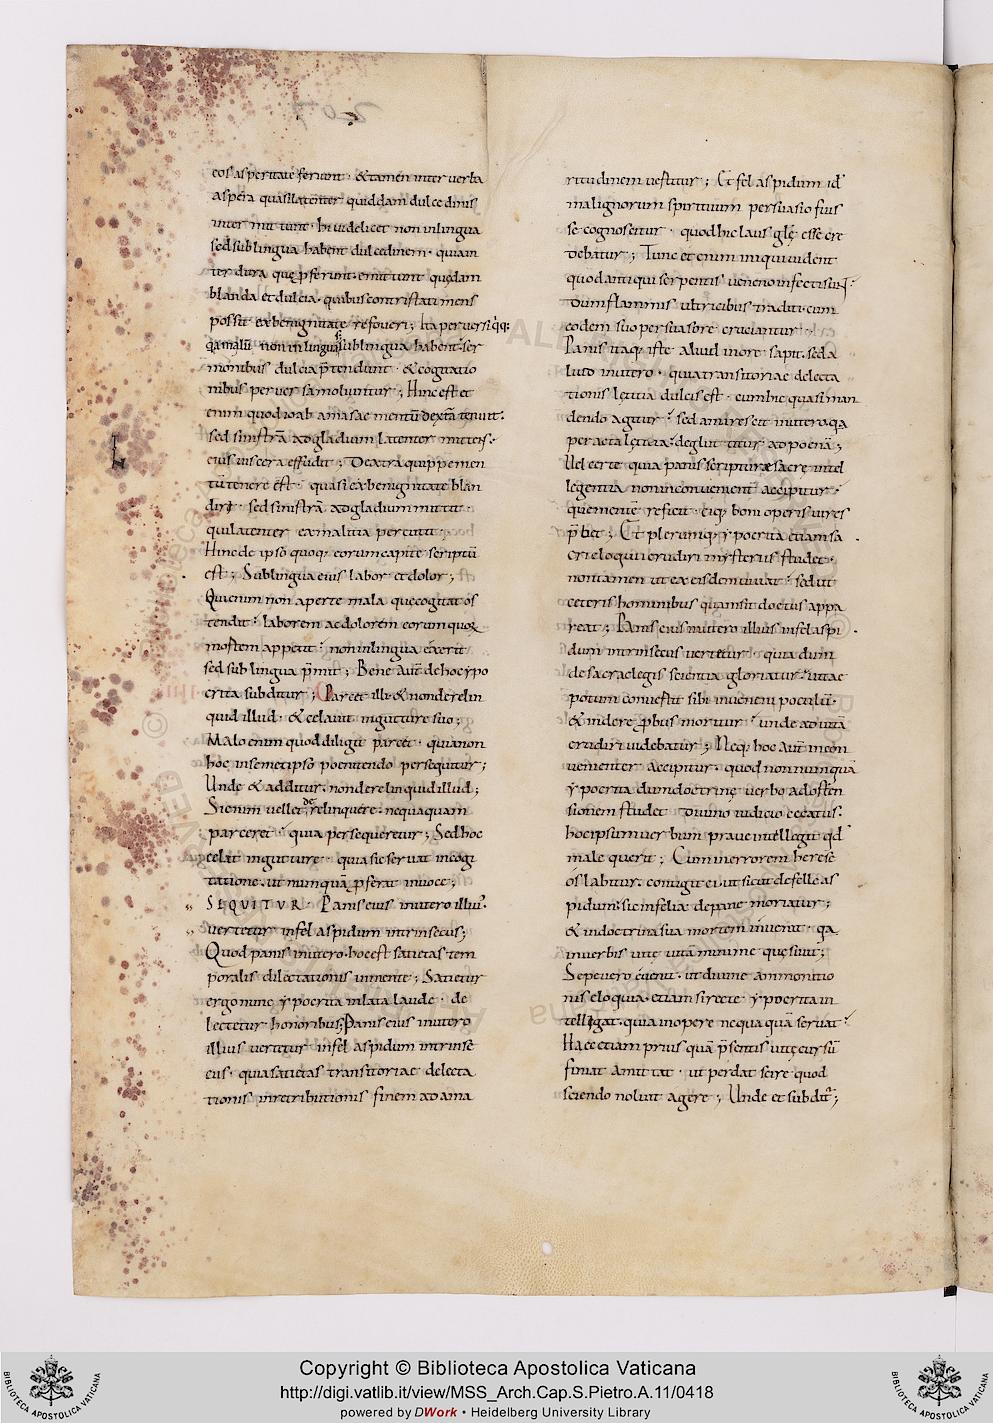 eos asperitate feriunt · & tamen inter verba
aspera quasi latenter quiddam dulcedinis
inter mittunt · hi videlicet non in lingua
sed sub lingua habent dulcedinem · quia in
ter dura quę p̱ferunt · emittunt quędam
blanda et dulcia · quibus contristati mens
possit ex benignitate refoveri ; Ita perversi q̇q:
q̇a malū non in lingua sed sub lingua habent · ser
monibus dulcia p̄tendunt · & cogitatio
nibus perversa moliuntur ; Hinc est et
enim quod ioab amasae mentū dextā tenuit ·
sed sinistrā ad gladium latenter mittens ·
eius viscera effudit ; Dextra quippe men
tū tenere est · quasi ex benignitate blan
diri · sed sinistrā ad gladium mittit ·
qui latenter ex malitia percutit ·
Hinc de ipsō quoq; eorum capite scriptū
est ; Sub lingua eius labor et dolor ;
Qui enim non aperte mala que cogitat os
tendit · laborem ac dolorem eorum quoꝝ
mortem appetit · non in lingua exerit
sed sub lingua p̄mit ; Bene aut̄ de hoc ypo
crita subditur ; Parcet illi & non derelin
quid illud · & celavit in gutture suo ;
Malo enim quod diligit parcet · quia non
hoc in semetipsō poenitendo persequitur ;
Unde & additur · non derelinquid illud ;
Si enim vellet derelinquere · nequaquam
parceret · quia persequeretur ; Sed hoc
celat in gutture · quia sic servat in cogi
tatione · ut nunquā p̱ferat in voce ;
SEQUITVR · Panis eius in utero illiu᾿ ·
vertetur in fel aspidum intrinsecus ;
Quod panis in utero · hoc est satietas tem
poralis dilectationis in mente ; Satietur
ergo nunc ypocrita inlata laude · de
lectetur honoribus ; Panis eius in utero
illius vertetur in fel aspidum intrinse
cus · quia satietas transitoriae delecta
tionis in retributionis finem ad ama
ritudinem vestitur ; Et fel aspidum id ē
malignorum spirituum persuasio fuis
se cognoscitur · quod hic laus glę esse cre
debatur ; Tunc etenim iniqui vident
quod antiqui serpentis veneno infecti sunt ·
dum flammis ultricibus traditi · cum
eodem suo persuasore cruciantur ·
Panis itaq; iste aliud in ore sapit · sed a
liud in utero · quia transitoriae delecta
tionis lętitia dulcis est · cum hic quasi man
dendo agitur · sed amarescit in utero q̇a
peracta lętitia · deglutitur ad poenā ;
Vel certe quia panis scripturae sacrę intel
legentia non inconvenient̄ accipitur ·
que mentē reficit · eiq; boni operis vires
p̄bet ; Et plerunq; ypocrita etiam sa
cri eloquii erudiri mysteriis studet ·
non tamen ut ex eisdem vivat · sed ut
ceteris hominibus quam sit doctus appa
reat ; Panis eius in utero illius in fel aspi
dum intrinsecus vertetur · quia dum
de sacrae legis scientia gloriatur · vitae
potum convertit sibi in veneni poculū ·
& inde reprobus moritur · unde ad vitā
erudiri videbatur ; Neq; hoc aut̄ incon
venienter accipitur · quod nonnunquā
ypocrita dum doctrinę verbo ad osten
sionem studet · divino iudicio cecatus ·
hoc ipsum verbum prave intellegit qđ
male querit ; Cum in errorem heresē
os labitur · contigit ei · ut sicut de felle as
pidum · sic infelix de pane moriatur ;
& in doctrina sua mortem invenit · q̇a
in verbis vitę vitā minime quęsivit ;
Sepe vero evenit · ut divine ammonitio
nis eloquia · etiam si recte ypocrita in
tellegat · quia in opere nequaquā servat ·
Haec etiam prius quā p̄sentis vitę cursū
finiat amittat · ut perdat scire quod
sciendo noluit agere ; Unde et subdit᾿ ;
Copyright © Biblioteca Apostolica Vaticana
http://digi.vatlib.it/view/MSS_Arch.Cap.S.Pietro.A.11/0418
powered by DWork • Heidelberg University Library
BIBLIOTECA APOSTOLICA VATICANA
BIBLIOTECA APOSTOLICA VATICANA